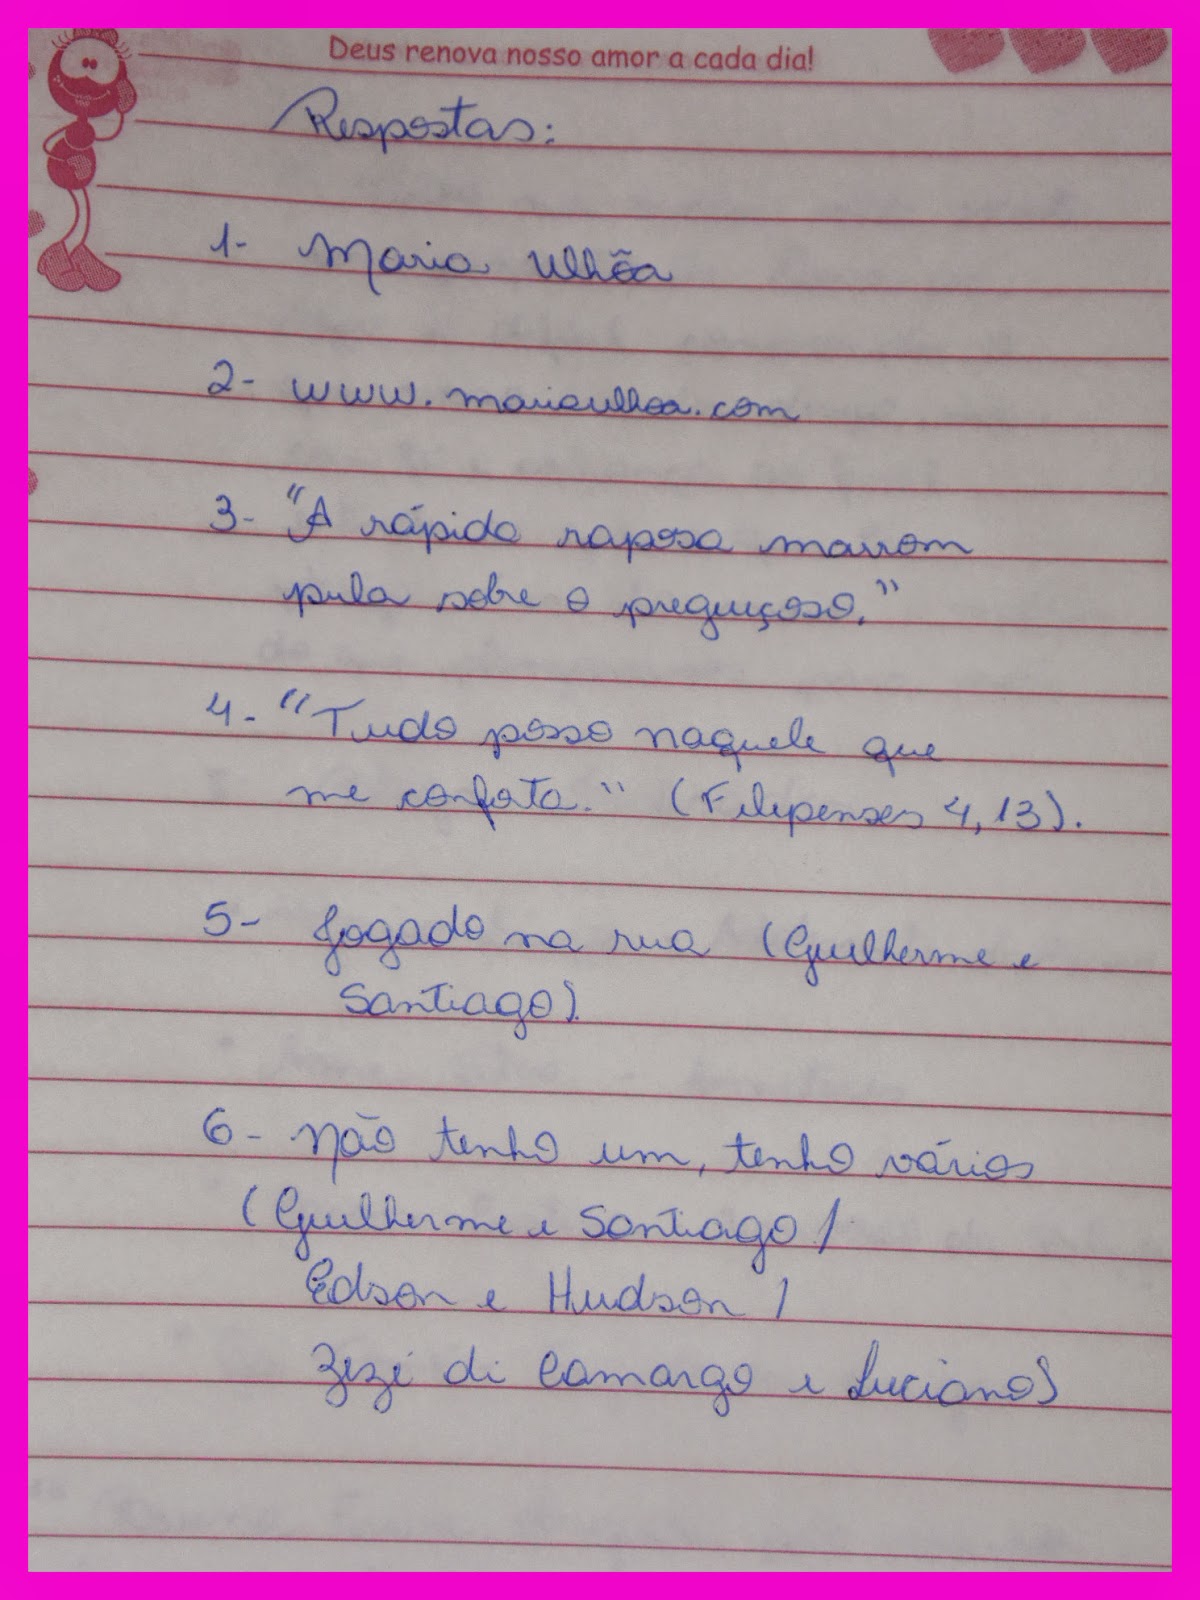 Deus renova nosso amor a cada dia!
Respostas:
1- Maria Ulhõa
2- www.mariaulhoa.com
3- "A rápida raposa marrom
pula sobre o preguiçoso."
4- "Tudo posso naquele que
me conforta." (Filipenses 4,13).
5- Jogado na rua (Guilherme e
Santiago).
6- Não tenho um, tenho vários
(Guilherme e Santiago /
Edson e Hudson /
Zezé di Camargo e Luciano)